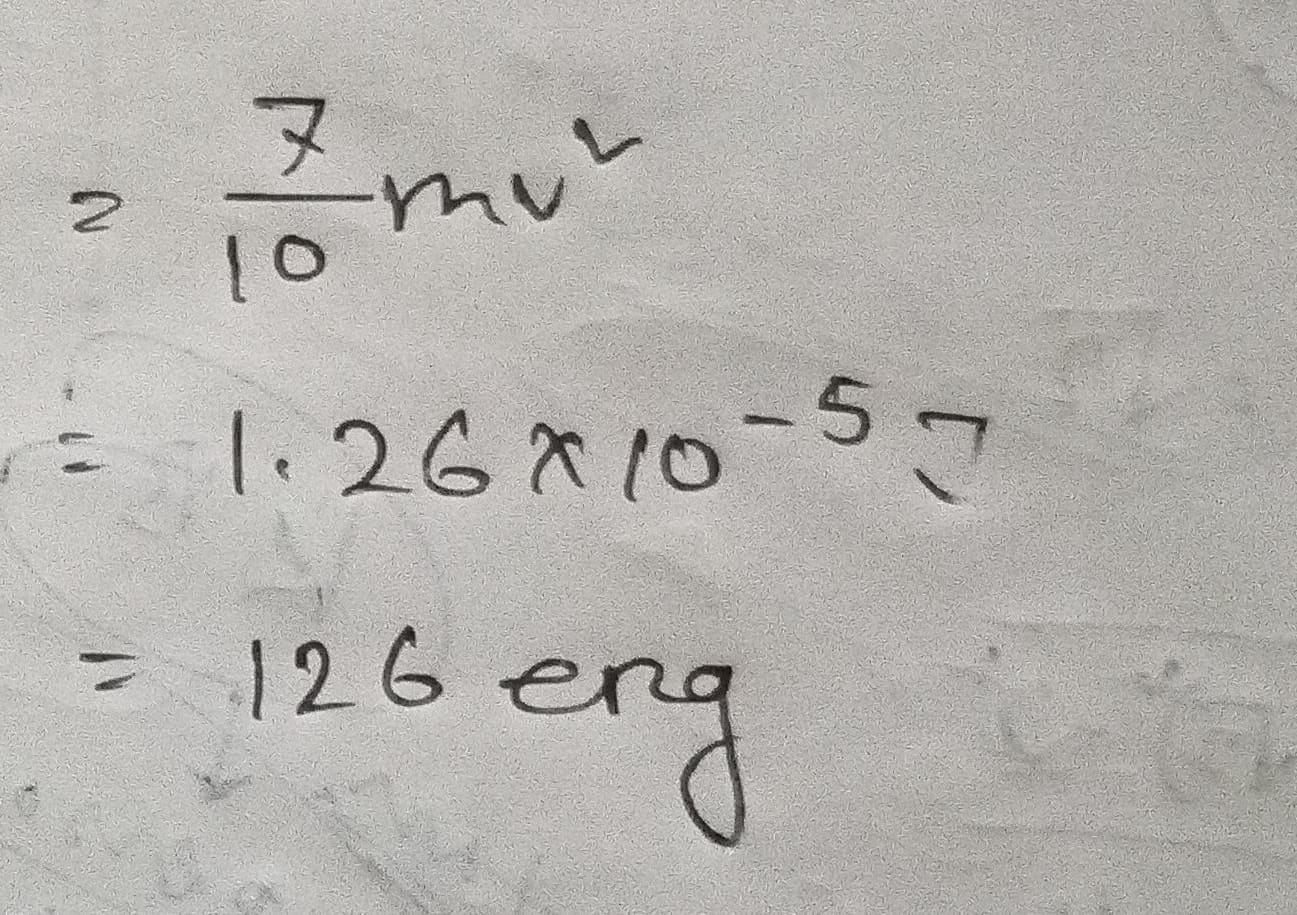 = 7/10 mv²
= 1.26 × 10⁻⁵ J
= 126 erg